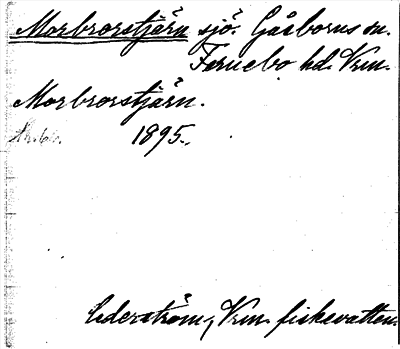 Morbrorstjärn sjö. Gåsborns sn.
Fernebo hd. Vrm.
Morbrorstjärn.
1895.
Cederström, Vrm. fiskevatten.